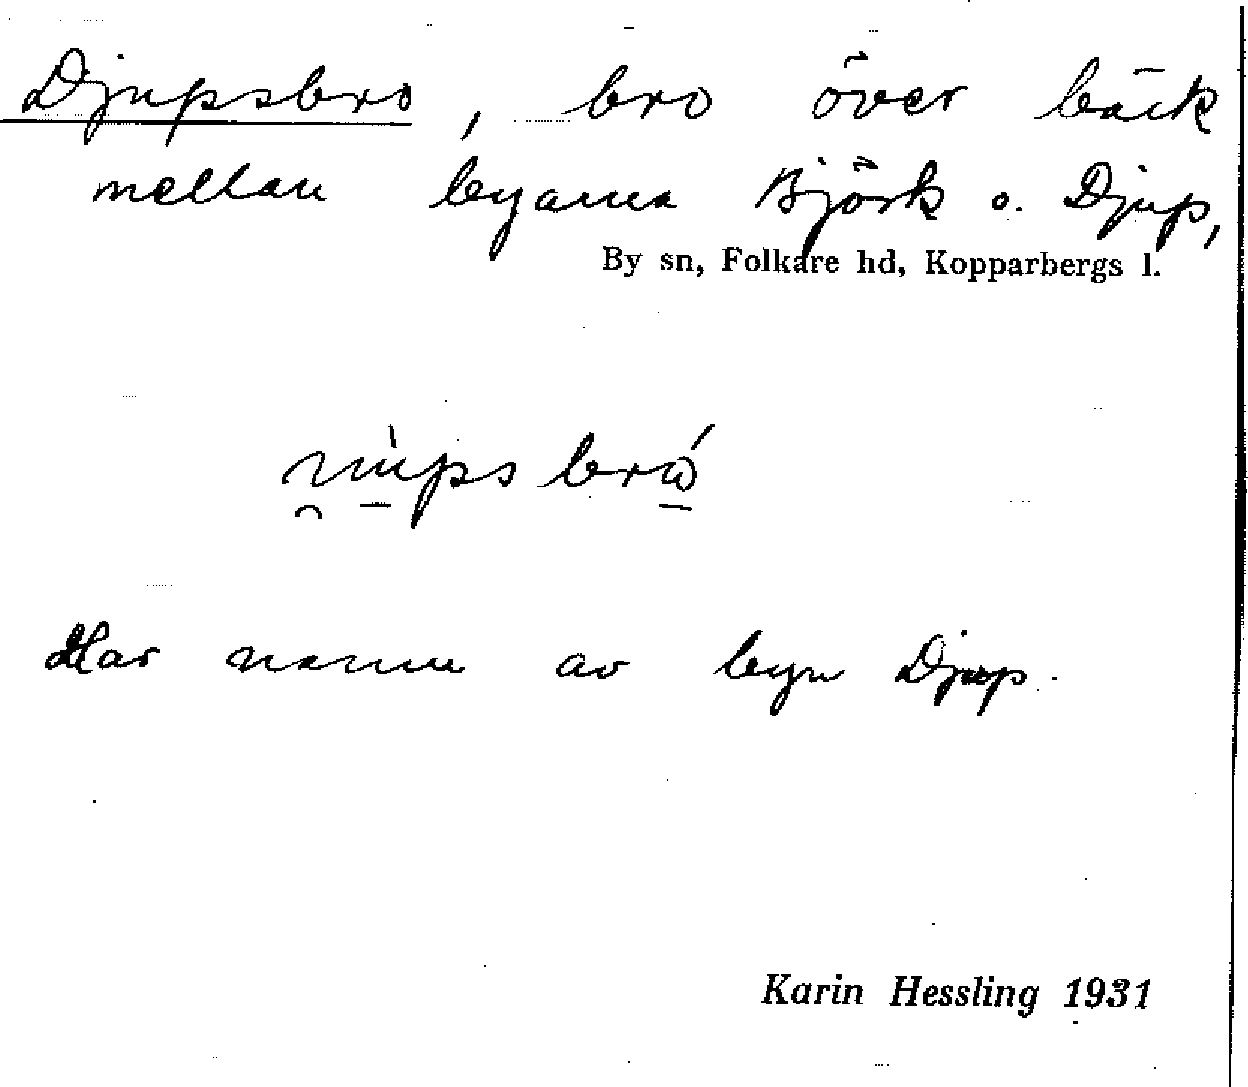 Djupsbro, bro över bäck
mellan byarna Björk o. Djup,
By sn, Folkare hd, Kopparbergs l.
Har namn av byn Djup.
Karin Hessling 1931